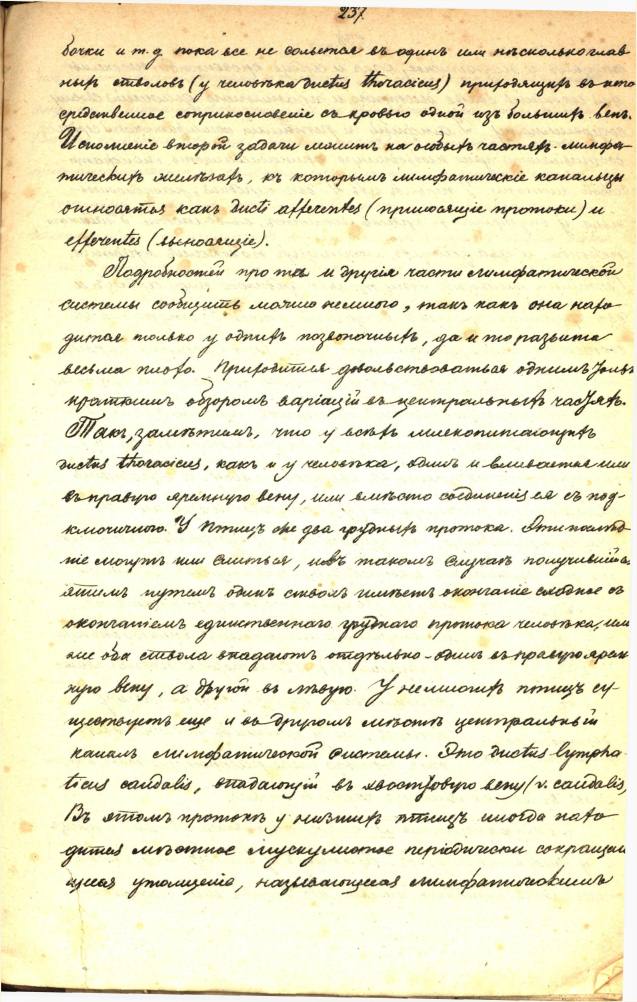 237.
бочки и т.д. пока все не сольется въ одинъ или нѣсколько глав-
ныхъ стволовъ (у человѣка ductus thoracicus) приходящихъ въ непо
средственное соприкосновеніе съ кровью одной изъ большихъ венъ.
Исполненіе второй задачи лежитъ на особыхъ частяхъ - лимфа-
тическихъ желѣзахъ, къ которымъ лимфатическіе канальцы
относятся какъ ducti afferentes (приносящіе протоки) и
efferentes (выносящіе).
Подробностей про тѣ и другія части лимфатической
системы сообщить можно немного, такъ какъ она нахо
дится только у однихъ позвоночныхъ, да и то развита
весьма плохо. Приходится довольствоваться однимъ
краткимъ обзоромъ варіацій въ центральныхъ частяхъ.
Такъ, замѣтимъ, что у всѣхъ млекопитающихъ
ductus thoracicus, какъ и у человѣка, одинъ и вливается или
въ правую яремную вену, или вмѣсто соединенія ея съ под-
ключичною. У птицъ же два грудныхъ протока. Эти послѣд-
ніе могутъ или слиться, и въ такомъ случаѣ получившійся
этимъ путемъ одинъ стволъ имѣетъ окончаніе сходное съ
окончаніемъ единственнаго грудного протока человѣка, или
же оба ствола впадаютъ отдѣльно - одинъ въ правую ярем
ную вену, а другой въ лѣвую. У немногихъ птицъ су-
ществуетъ еще и въ другомъ мѣстѣ центральный
каналъ лимфатической системы. Это ductus lympha-
ticus caudalis, впадающій въ хвостовую вену (v. caudalis,
Въ этомъ протокѣ у низшихъ птицъ иногда нахо
дится мѣстное мускулистое періодически сокращаю
щееся утолщеніе, называющееся лимфатическимъ